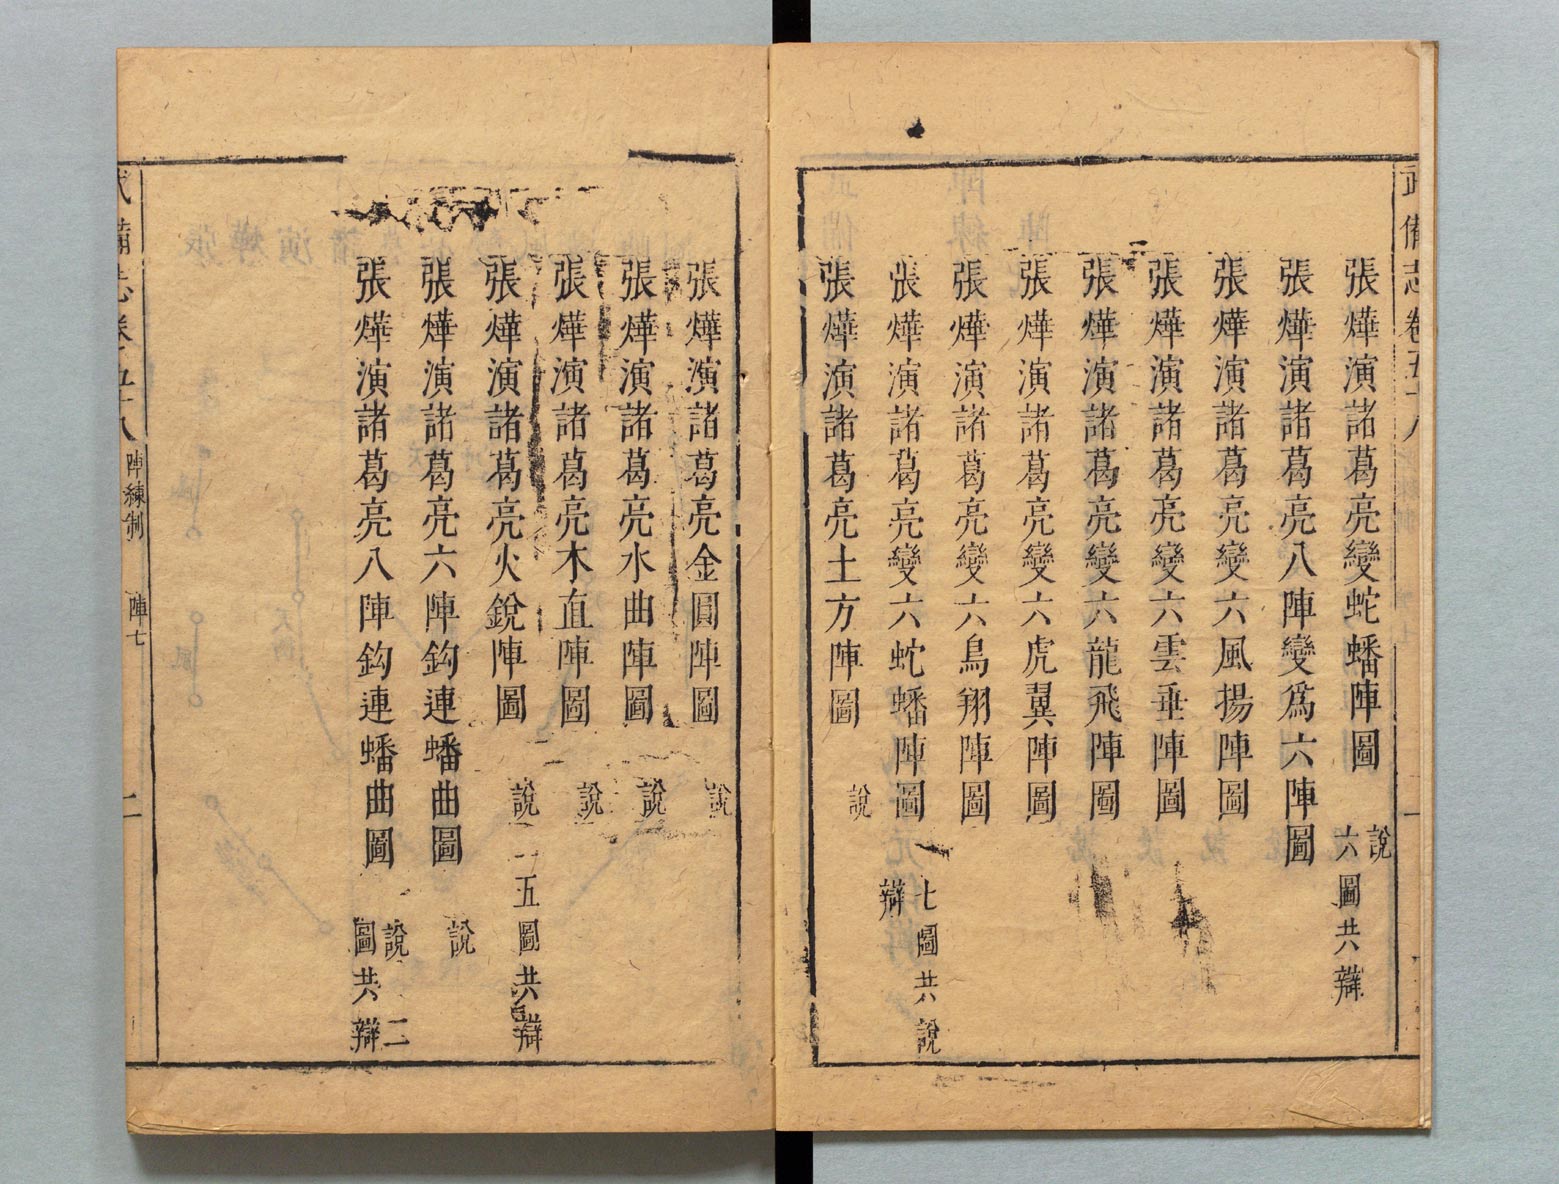 武備志卷五十八
一
張燁演諸葛亮變蛇蟠陣圖 說 六圖共辯
張燁演諸葛亮八陣變爲六陣圖
張燁演諸葛亮變六風揚陣圖
張燁演諸葛亮變六雲垂陣圖
張燁演諸葛亮變六龍飛陣圖
張燁演諸葛亮變六虎翼陣圖
張燁演諸葛亮變六鳥翔陣圖
張燁演諸葛亮變六蛇蟠陣圖 七圖共說 辯
張燁演諸葛亮土方陣圖 說
張燁演諸葛亮金圓陣圖 說
張燁演諸葛亮水曲陣圖 說
張燁演諸葛亮木直陣圖 說
張燁演諸葛亮火銳陣圖 說 五圖共辯
張燁演諸葛亮六陣鈎連蟠曲圖 說
張燁演諸葛亮八陣鈎連蟠曲圖 說 二圖共辯
武備志卷五十八 陣練制 陣七 二